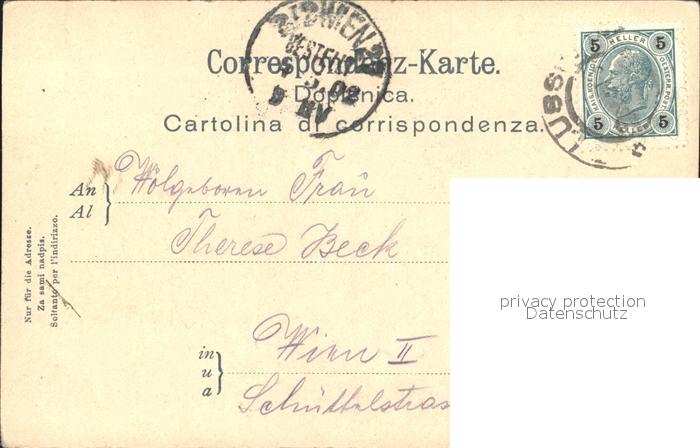 WIEN
BESTELLT
Correspondenz-Karte.
Dopisnica.
Cartolina di corrispondenza.
5 HELLER 5
KAIS. KOENIGL. OESTERR. POST
5 HELLER 5
LUSSIN
An
Al
Wolgeboren Frau
Therese Beck
in
u
a
Wien II
Schüttelstras
Nur für die Adresse.
Za sami nadpis.
Soltanto per l'indirizzo.
privacy protection
Datenschutz